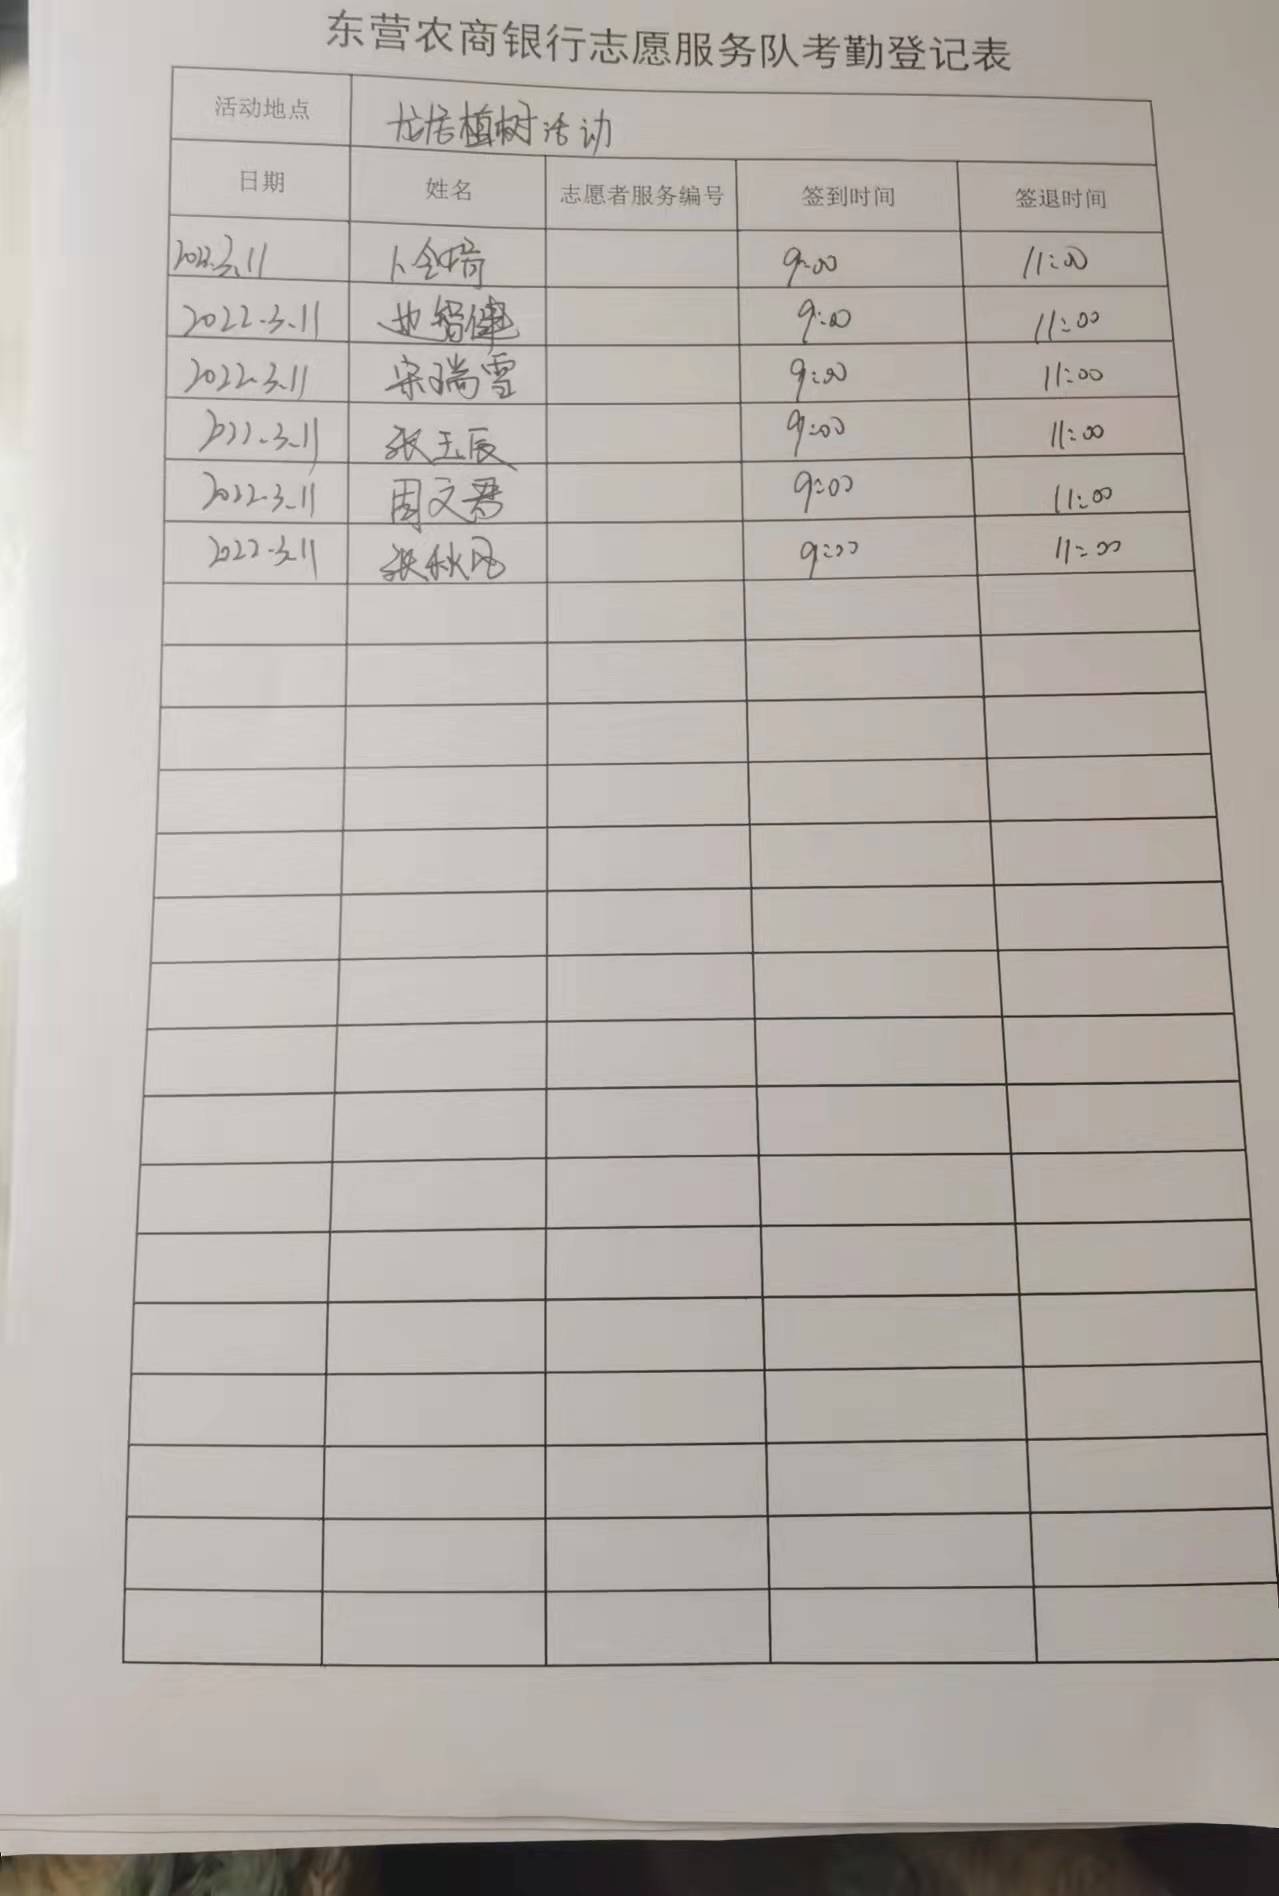 东营农商银行志愿服务队考勤登记表
活动地点 龙居植树活动
日期 姓名 志愿者服务编号 签到时间 签退时间
2022.3.11 卜全 9:00 11:00
2022.3.11 9:00 11:00
2022.3.11 宋瑞雪 9:00 11:00
2022.3.11 张玉辰 9:00 11:00
2022.3.11 周文君 9:00 11:00
2022.3.11 张秋风 9:00 11:00